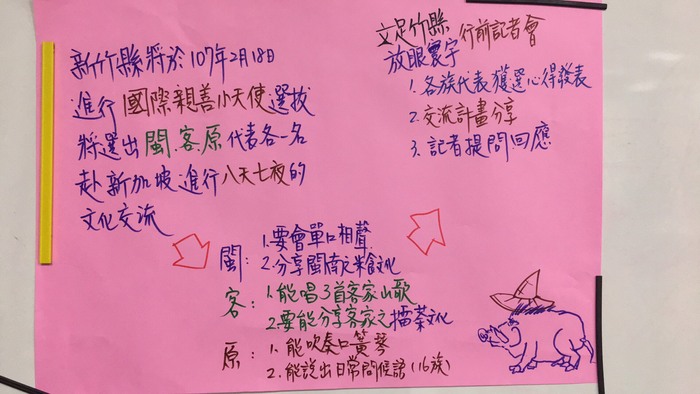 新竹縣將於107年2月18日
進行國際親善小天使選拔
將選出閩.客.原代表各一名
赴新加坡進行八天七夜的
文化交流
閩：1.要會單口相聲
2.分享閩南之米食文化
客：1.能唱3首客家山歌
2.要能分享客家之擂茶文化
原：1.能吹奏口簧琴
2.能說出日常問候語(16族)
立足竹縣
放眼寰宇
行前記者會
1.各族代表獲選心得發表
2.交流計畫分享
3.記者提問回應